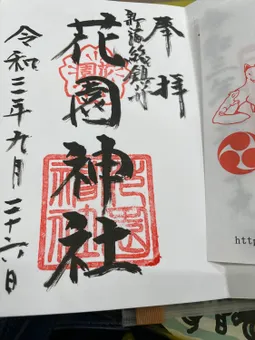 奉拝
新宿総鎮守
花園神社
令和三年九月二十六日
花園神社
htt